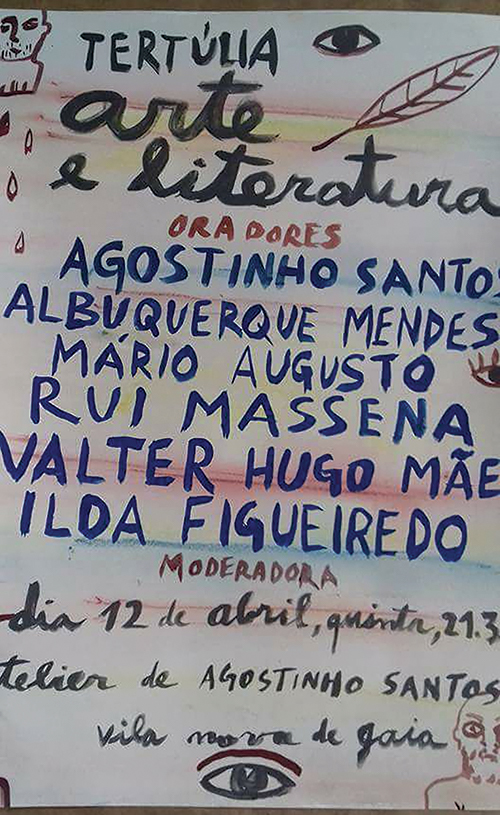 TERTÚLIA
arte
e literatura
ORADORES
AGOSTINHO SANTO
ALBUQUERQUE MENDES
MÁRIO AUGUSTO
RUI MASSENA
VALTER HUGO MÃE
ILDA FIGUEIREDO
MODERADORA
dia 12 de abril, quinta, 21.3
telier de AGOSTINHO SANTOS
vila nova de gaia